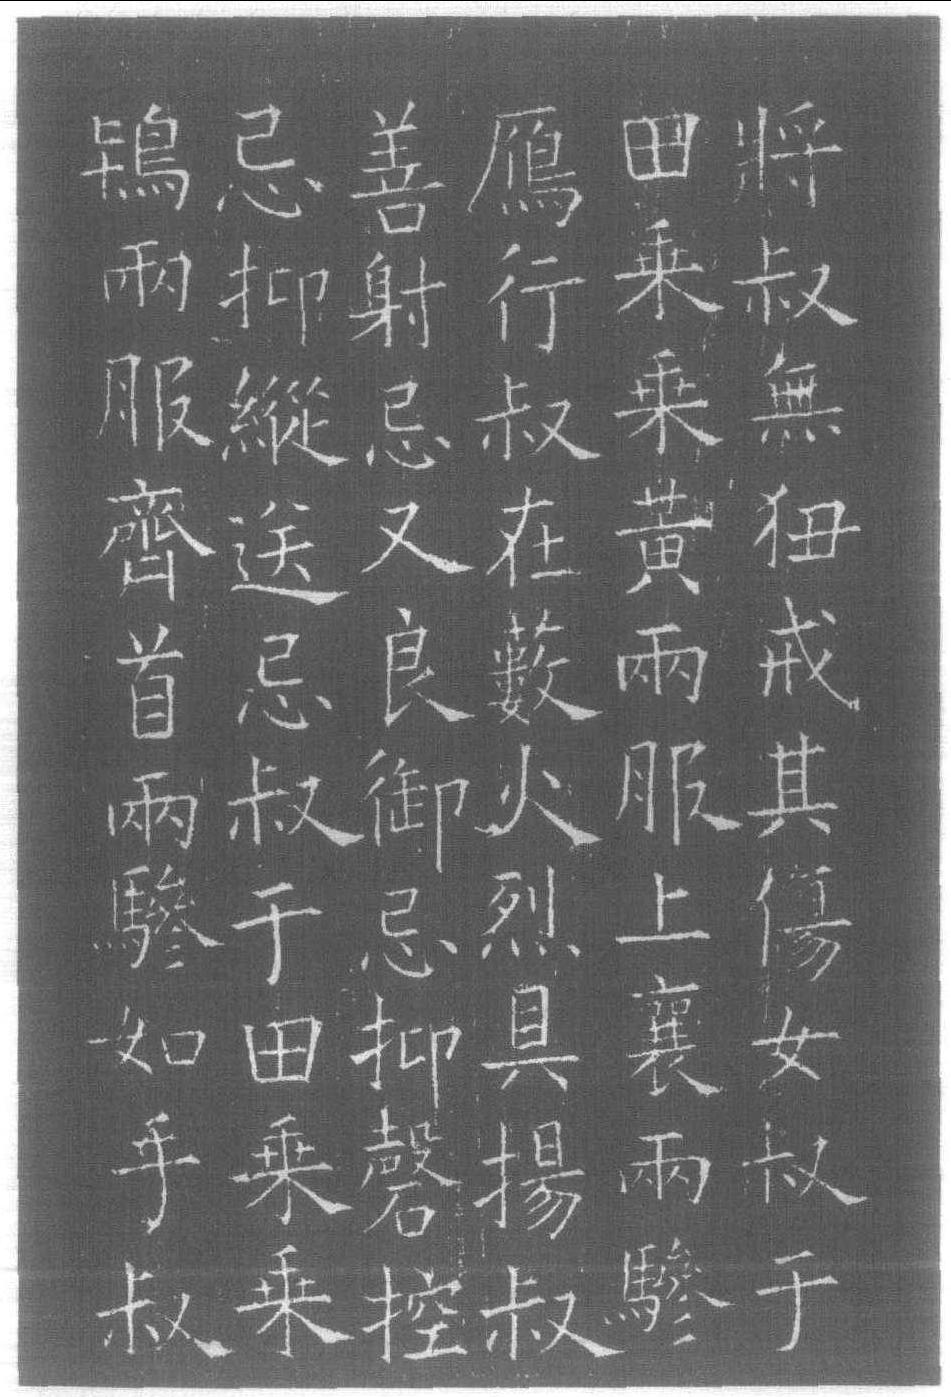 將叔無狃戒其傷女叔于
田乗乗黃兩服上襄兩驂
鴈行叔在藪火烈具揚叔
善射忌又良御忌抑磬控
忌抑縱送忌叔于田乗乗
鴇兩服齊首兩驂如手叔